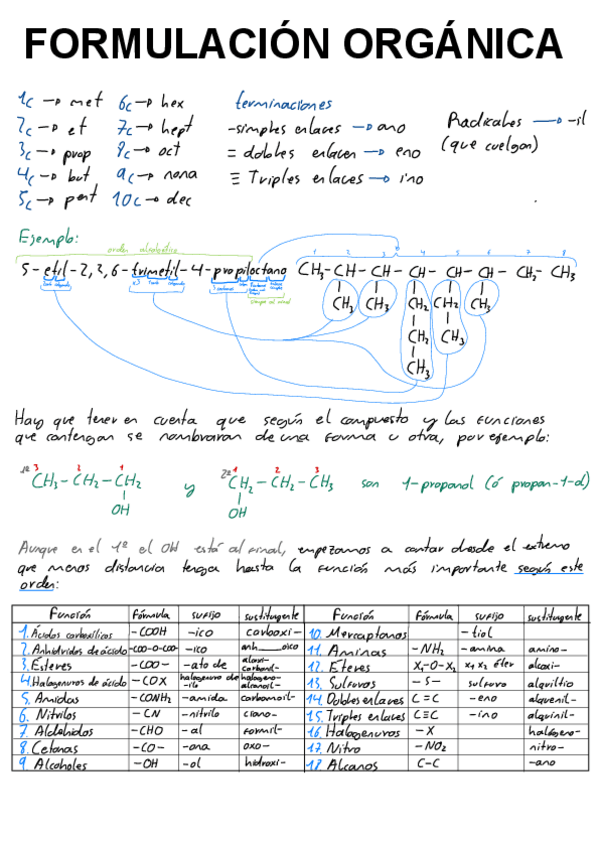 FORMULACIÓN ORGÁNICA
1c → met 6c → hex terminaciones
2c → et 7c → hept -simples enlaces → ano Radicales → -il
3c → prop 8c → oct = dobles enlaces → eno (que cuelgan)
4c → but 9c → nona ≡ Triples enlaces → ino
5c → pent 10c → dec
Ejemplo:
orden alfabético
1 2 3 4 5 6 7 8
5-etil-2,3,6-trimetil-4-propiloctano CH3-CH-CH-CH-CH-CH-CH2-CH3
CH3 CH3 CH2 CH2 CH3
CH2 CH3
CH3
Hay que tener en cuenta que según el compuesto y las funciones
que contengan se nombraran de una forma u otra, por ejemplo:
3 2 1 1 2 3
1º CH3-CH2-CH2 y 2º CH2-CH2-CH3 son 1-propanol (ó propan-1-ol)
OH OH
Aunque en el 1º el OH está al final, empezamos a contar desde el extremo
que menos distancia tenga hasta la función más importante según este
orden:
Función Fórmula sufijo sustituyente Función Fórmula sufijo sustituyente
1. Ácidos carboxílicos -COOH -ico carboxi- 10. Mercaptanos -tiol
2. Anhídridos de ácido -COO-O-COO- -ico anh___oico 11. Aminas -NH2 -amina amino-
3. Ésteres -COO- -ato de alcoxi-carbonil- 12. Éteres X1-O-X2 X1 X2 éter alcoxi-
4. Halogenuros de ácido -COX halogenuro de -ilo halogeno-alcanoil- 13. Sulfuros -S- sulfuro alquiltio
5. Amidas -CONH2 -amida carbamoil- 14. Dobles enlaces C=C -eno alquenil-
6. Nitrilos -CN -nitrilo ciano- 15. Triples enlaces C≡C -ino alquinil-
7. Aldehidos -CHO -al formil- 16. Halogenuros -X halógeno-
8. Cetonas -CO- -ona oxo- 17. Nitro -NO2 nitro-
9. Alcoholes -OH -ol hidroxi- 18. Alcanos C-C -ano